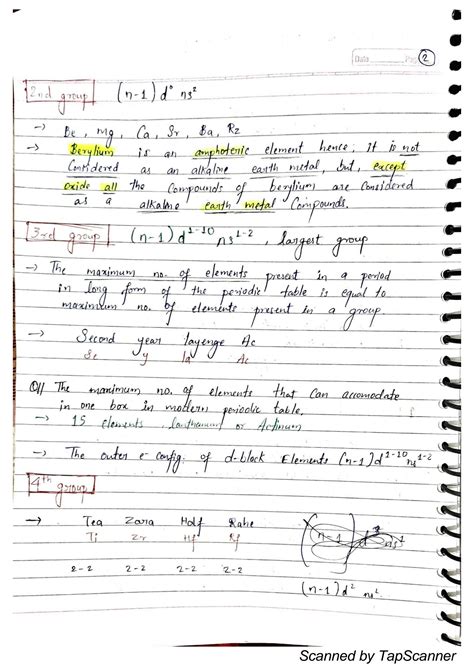 Date Pg. 2
2nd group (n-1) d° ns²
→ Be, mg, Ca, Sr, Ba, Rz
→ Berylium is an amphoteric element hence, it is not
Considered as an alkaline earth metal, but, except
oxide all the compounds of berylium are Considered
as a alkaline earth metal Compounds.
3rd group (n-1) d¹⁻¹⁰ ns¹⁻², largest group
→ The maximum no. of elements present in a period
in long form of the periodic table is equal to
maximum no. of elements present in a group
→ Second year layenge Ac
Sc y la Ac
Q11 The maximum no. of elements that can accomodate
in one box in modern periodic table.
→ 15 elements, Lanthanum or Actinum
→ The outer e⁻ config. of d-block Elements (n-1)d¹⁻¹⁰ns¹⁻²
4th group
→ Tea Zara Hdf Rahe
Ti Zr Hf Rf
2-2 2-2 2-2 2-2
(n-1) d² ns²
(n-1) d² ns².
Scanned by TapScanner